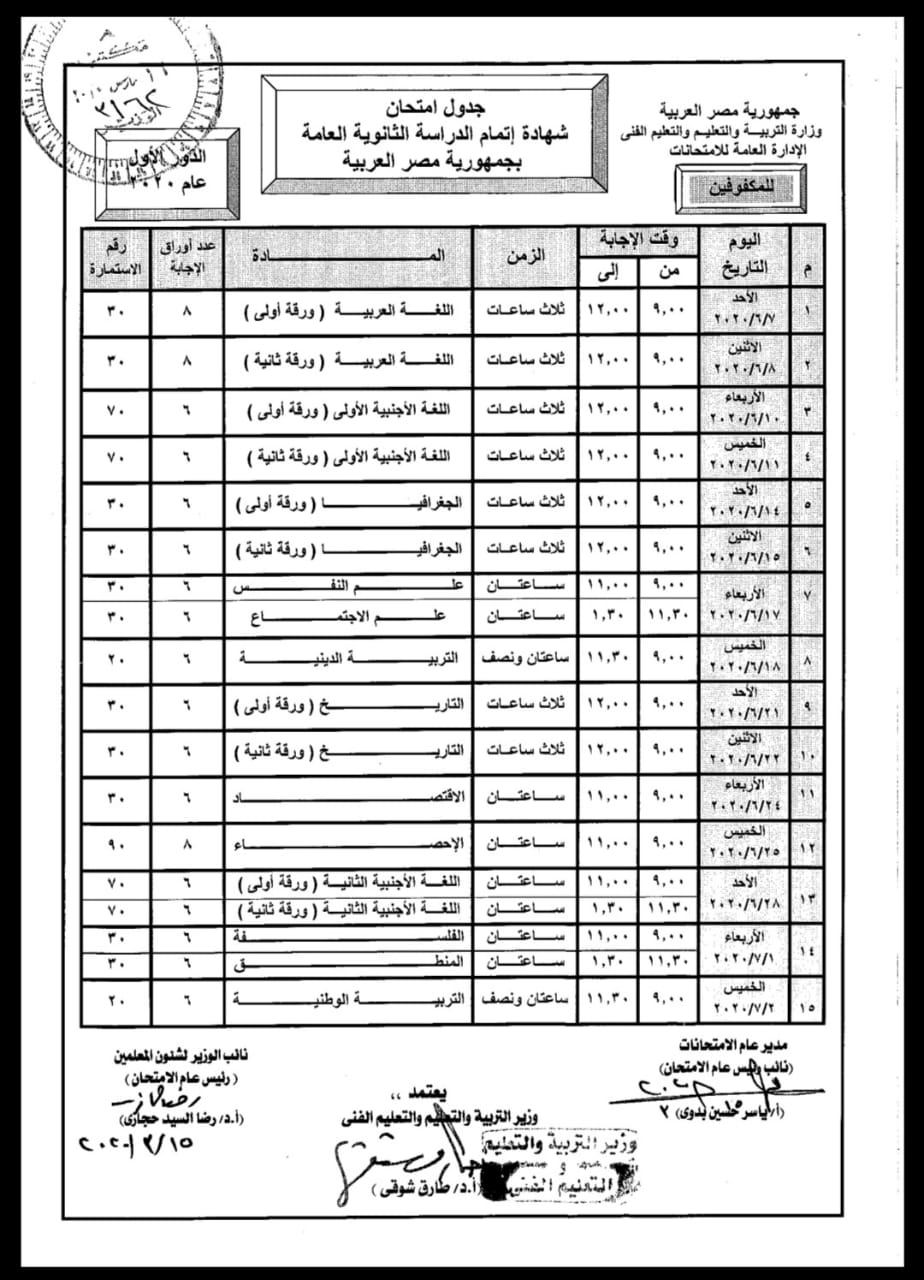 جمهورية مصر العربية
وزارة التربية والتعليم والتعليم الفنى
الإدارة العامة للامتحانات
للمكفوفين
جدول امتحان
شهادة إتمام الدراسة الثانوية العامة
بجمهورية مصر العربية
الدور الأول
عام ٢٠٢٠
م اليوم التاريخ وقت الإجابة من إلى الزمن المادة عدد أوراق الإجابة رقم الاستمارة
١ الأحد ٢٠٢٠/٦/٧ ٩,٠٠ ١٢,٠٠ ثلاث ساعات اللغة العربية ( ورقة أولى ) ٨ ٣٠
٢ الاثنين ٢٠٢٠/٦/٨ ٩,٠٠ ١٢,٠٠ ثلاث ساعات اللغة العربية ( ورقة ثانية ) ٨ ٣٠
٣ الأربعاء ٢٠٢٠/٦/١٠ ٩,٠٠ ١٢,٠٠ ثلاث ساعات اللغة الأجنبية الأولى ( ورقة أولى ) ٦ ٧٠
٤ الخميس ٢٠٢٠/٦/١١ ٩,٠٠ ١٢,٠٠ ثلاث ساعات اللغة الأجنبية الأولى ( ورقة ثانية ) ٦ ٧٠
٥ الأحد ٢٠٢٠/٦/١٤ ٩,٠٠ ١٢,٠٠ ثلاث ساعات الجغرافيا ( ورقة أولى ) ٦ ٣٠
٦ الاثنين ٢٠٢٠/٦/١٥ ٩,٠٠ ١٢,٠٠ ثلاث ساعات الجغرافيا ( ورقة ثانية ) ٦ ٣٠
٧ الأربعاء ٢٠٢٠/٦/١٧ ٩,٠٠ ١١,٠٠ ساعتان علم النفس ٦ ٣٠
١١,٣٠ ١,٣٠ ساعتان علم الاجتماع ٦ ٣٠
٨ الخميس ٢٠٢٠/٦/١٨ ٩,٠٠ ١١,٣٠ ساعتان ونصف التربية الدينية ٦ ٢٠
٩ الأحد ٢٠٢٠/٦/٢١ ٩,٠٠ ١٢,٠٠ ثلاث ساعات التاريخ ( ورقة أولى ) ٦ ٣٠
١٠ الاثنين ٢٠٢٠/٦/٢٢ ٩,٠٠ ١٢,٠٠ ثلاث ساعات التاريخ ( ورقة ثانية ) ٦ ٣٠
١١ الأربعاء ٢٠٢٠/٦/٢٤ ٩,٠٠ ١١,٠٠ ساعتان الاقتصاد ٦ ٣٠
١٢ الخميس ٢٠٢٠/٦/٢٥ ٩,٠٠ ١١,٠٠ ساعتان الإحصاء ٨ ٩٠
١٣ الأحد ٢٠٢٠/٦/٢٨ ٩,٠٠ ١١,٠٠ ساعتان اللغة الأجنبية الثانية ( ورقة أولى ) ٦ ٧٠
١١,٣٠ ١,٣٠ ساعتان اللغة الأجنبية الثانية ( ورقة ثانية ) ٦ ٧٠
١٤ الأربعاء ٢٠٢٠/٧/١ ٩,٠٠ ١١,٠٠ ساعتان الفلسفة ٦ ٣٠
١١,٣٠ ١,٣٠ ساعتان المنطق ٦ ٣٠
١٥ الخميس ٢٠٢٠/٧/٢ ٩,٠٠ ١١,٣٠ ساعتان ونصف التربية الوطنية ٦ ٢٠
مدير عام الامتحانات
(نائب رئيس عام الامتحان)
(أ/ ياسر محسين بدوى)
نائب الوزير لشئون المعلمين
(رئيس عام الامتحان)
(أ.د/ رضا السيد حجازى)
٢٠٢٠/٣/١٥
يعتمد ،،
وزير التربية والتعليم والتعليم الفنى
وزير التربية والتعليم
و
التعليم الفنى
(أ.د/ طارق شوقى )